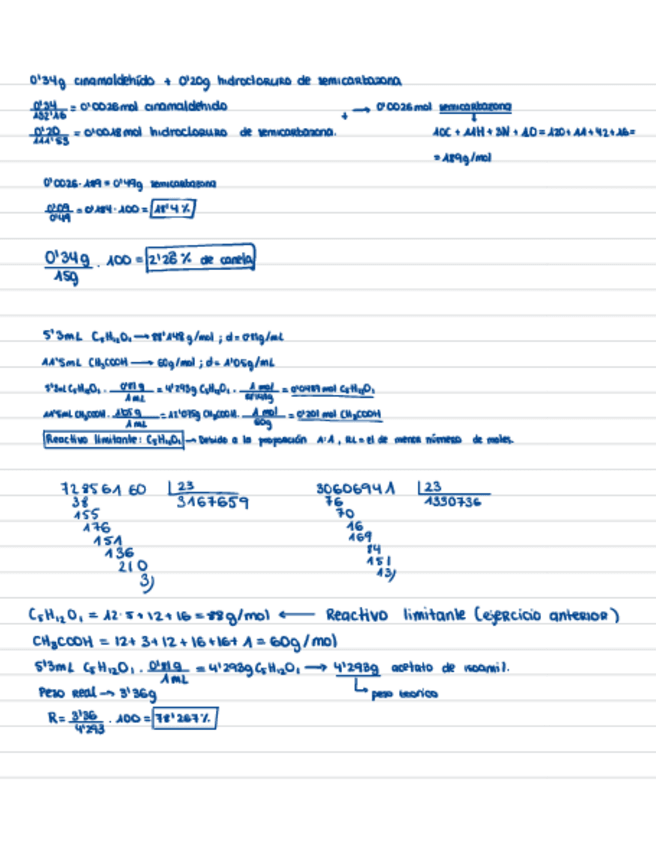 0'34g cinamaldehído + 0'20g hidrocloruro de semicarbazona
0'34/132'16 = 0'0026mol cinamaldehído + → 0'0026mol semicarbazona
0'20/111'53 = 0'0018mol hidrocloruro de semicarbazona. 10C + 11H + 3N + 1O = 120+11+42+16=
= 189g/mol
0'0026·189 = 0'49g semicarbazona
0'09/0'49 = 0'184·100 = 18'4%
0'34g/15g · 100 = 2'26% de canela
5'3mL C₅H₁₂O₁ → 88'148g/mol ; d = 0'81g/mL
11'5mL CH₃COOH → 60g/mol ; d = 1'05g/mL
5'3mL C₅H₁₂O₁ · 0'81g/1mL = 4'293g C₅H₁₂O₁ · 1mol/88'148g = 0'0487mol C₅H₁₂O₁
11'5mL CH₃COOH · 1'05g/1mL = 12'075g CH₃COOH · 1mol/60g = 0'201mol CH₃COOH
Reactivo limitante: C₅H₁₂O₁ → Debido a la proporción 1:1, RL = el de menor número de moles.
72856160 |23 30606941 |23
38 3167659 76 1330736
155 70
176 16
151 169
136 84
210 151
3) 13)
C₅H₁₂O₁ = 12·5+12+16 = 88g/mol ← Reactivo limitante (ejercicio anterior)
CH₃COOH = 12+3+12+16+16+1 = 60g/mol
5'3mL C₅H₁₂O₁ · 0'81g/1mL = 4'293g C₅H₁₂O₁ → 4'293g acetato de isoamil.
Peso Real → 3'36g peso teorico
R = 3'36/4'293 · 100 = 78'267%